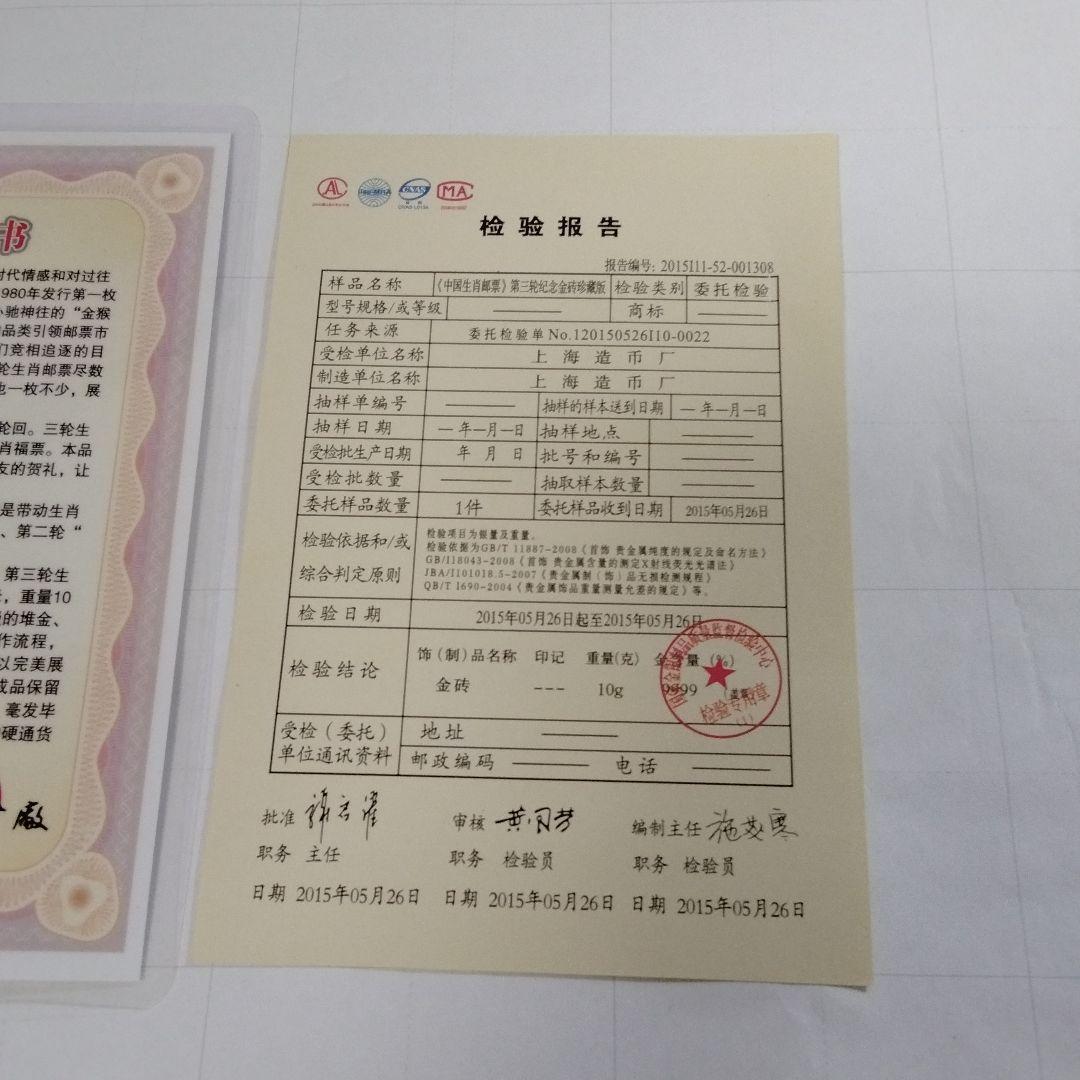 书
时代情感和对过往
980年发行第一枚
心驰神往的“金猴
品类引领邮票市
们竞相追逐的目
轮生肖邮票尽数
也一枚不少，展
轮回。三轮生
肖福票。本品
友的贺礼，让
是带动生肖
、第二轮“
第三轮生
，重量10
的堆金、
作流程，
以完美展
成品保留
毫发毕
硬通货
廠
MA
检验报告
报告编号：2015I11-52-001308
样品名称 《中国生肖邮票》第三轮纪念金砖珍藏版 检验类别 委托检验
型号规格/或等级 ———— 商标 ————
任务来源 委托检验单No.120150526I10-0022
受检单位名称 上海造币厂
制造单位名称 上海造币厂
抽样单编号 ———— 抽样的样本送到日期 —年—月—日
抽样日期 —年—月—日 抽样地点 ————
受检批生产日期 年 月 日 批号和编号 ————
受检批数量 ———— 抽取样本数量 ————
委托样品数量 1件 委托样品收到日期 2015年05月26日
检验依据和/或
综合判定原则
检验项目为银量及重量。
检验依据为GB/T 11887-2008《首饰 贵金属纯度的规定及命名方法》
GB/I18043-2008《首饰 贵金属含量的测定X射线荧光光谱法》
JBA/I101018.5-2007《贵金属制（饰）品无损检测规程》
QB/T 1690-2004《贵金属饰品重量测量允差的规定》等。
检验日期 2015年05月26日起至2015年05月26日
检验结论
饰（制）品名称 印记 重量(克) 金含量（%）
金砖 --- 10g 9999 （盖章）
国家金银制品质量监督检验中心
检验专用章
(1)
受检（委托）
单位通讯资料
地址 ————
邮政编码 ———— 电话 ————
批准 审核 黄 芳 编制主任 施
职务 主任 职务 检验员 职务 检验员
日期 2015年05月26日 日期 2015年05月26日 日期 2015年05月26日